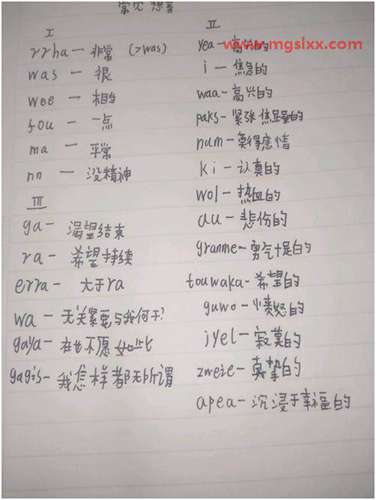 常见想音
I
rrha — 非常 (>was)
was — 很
wee — 相当
fou — 一点
ma — 平常
nn — 没精神
III
ga — 渴望结束
ra — 希望持续
erra — 大于ra
wa — 无关紧要与我何干?
gaya — 在也不愿如此
gagis — 我怎样都无所谓
II
yea — 高兴的
www.mgslxx.com
i — 焦急的
waa — 高兴的
paks — 紧张焦躁的
num — 莫得感情
ki — 认真的
wol — 热血的
au — 悲伤的
granme — 勇气十足的
touwaka — 希望的
guwo — 愤怒的
jyel — 寂寞的
zweie — 真挚的
apea — 沉浸于幸福的